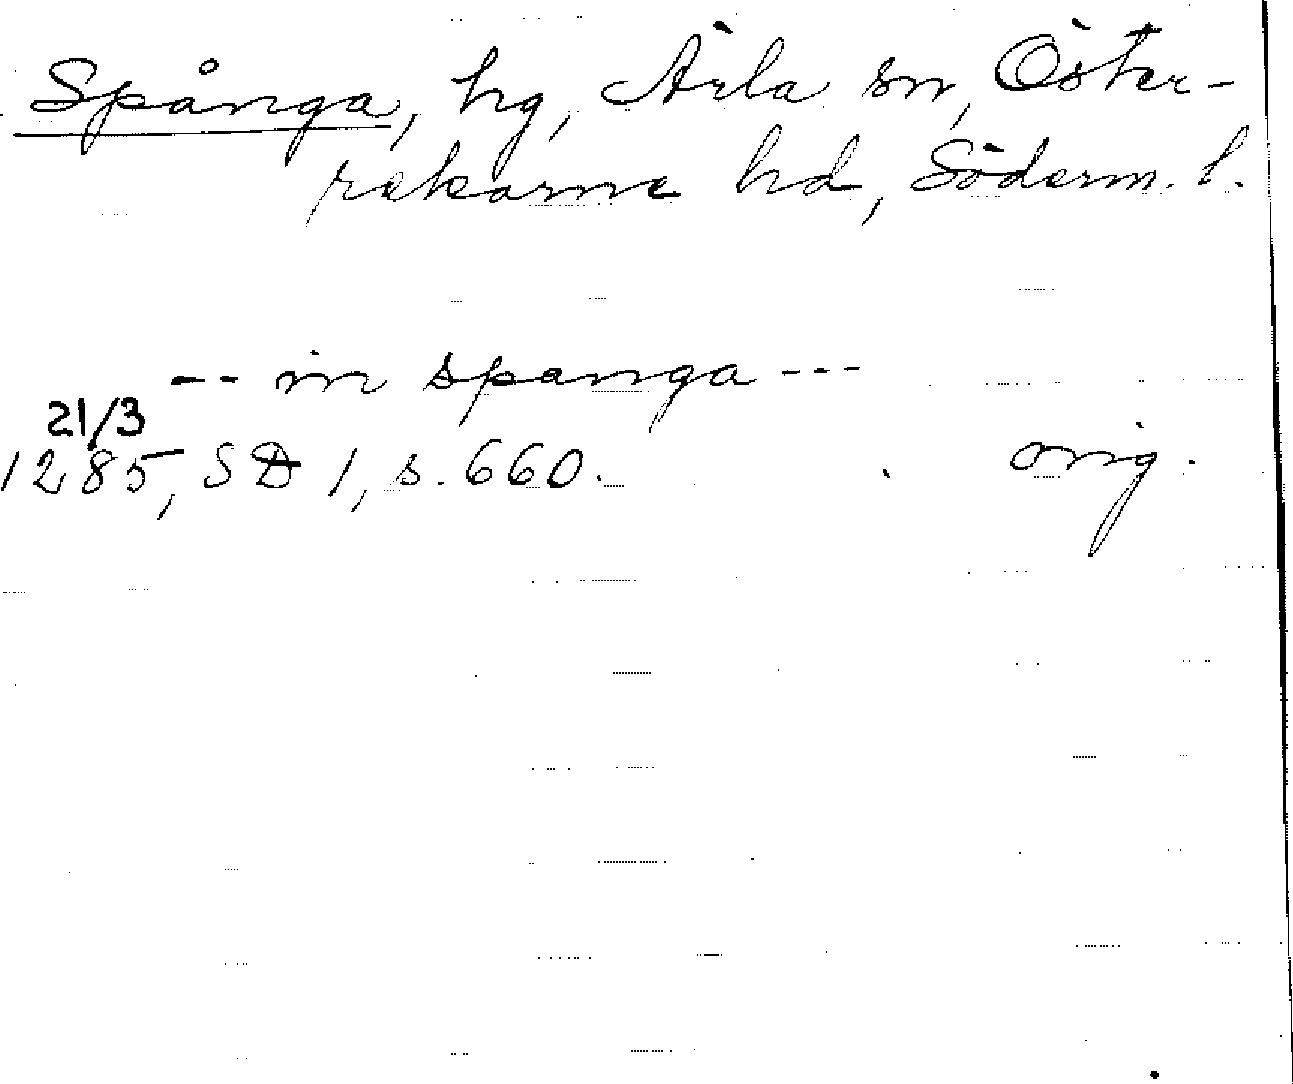 Spånga, hg, Ärla sn, Öster-
rekarne hd, Söderm. l.
-- in spanga ---
21/3
1285, SD 1, s. 660. orig.